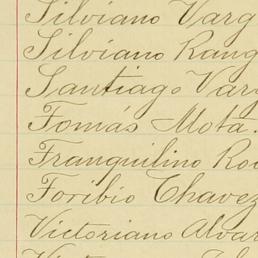 Silviano Varg
Silviano Rang
Santiago Varg
Tomás Mota.
Tranquilino Ro
Toribio Chavez
Victoriano Alvar